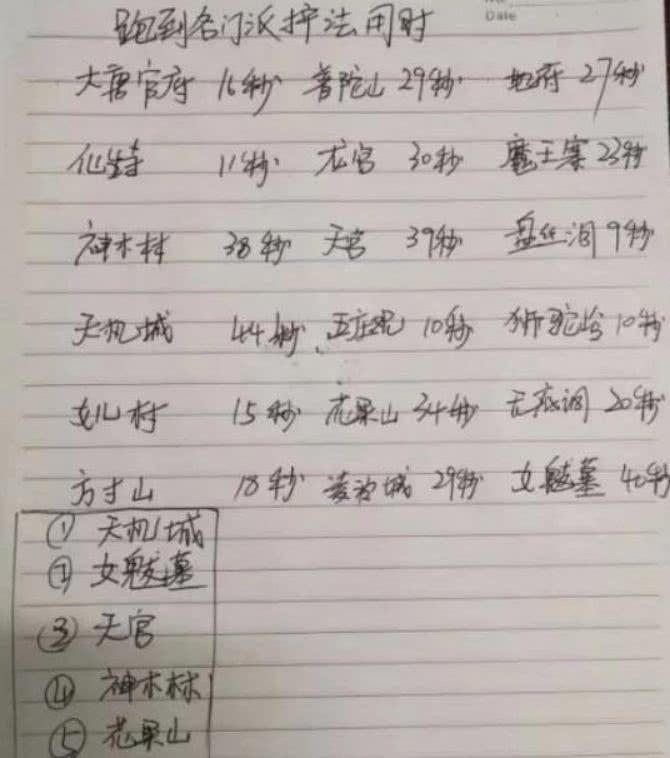 Date
跑到各门派护法用时
大唐官府 16秒 普陀山 29秒 地府 27秒
化生寺 11秒 龙宫 30秒 魔王寨 23秒
神木林 38秒 天宫 39秒 盘丝洞 9秒
天机城 44秒 五庄观 10秒 狮驼岭 10秒
女儿村 15秒 花果山 34秒 无底洞 20秒
方寸山 18秒 凌波城 29秒 女魃墓 40秒
① 天机城
② 女魃墓
③ 天宫
④ 神木林
⑤ 花果山